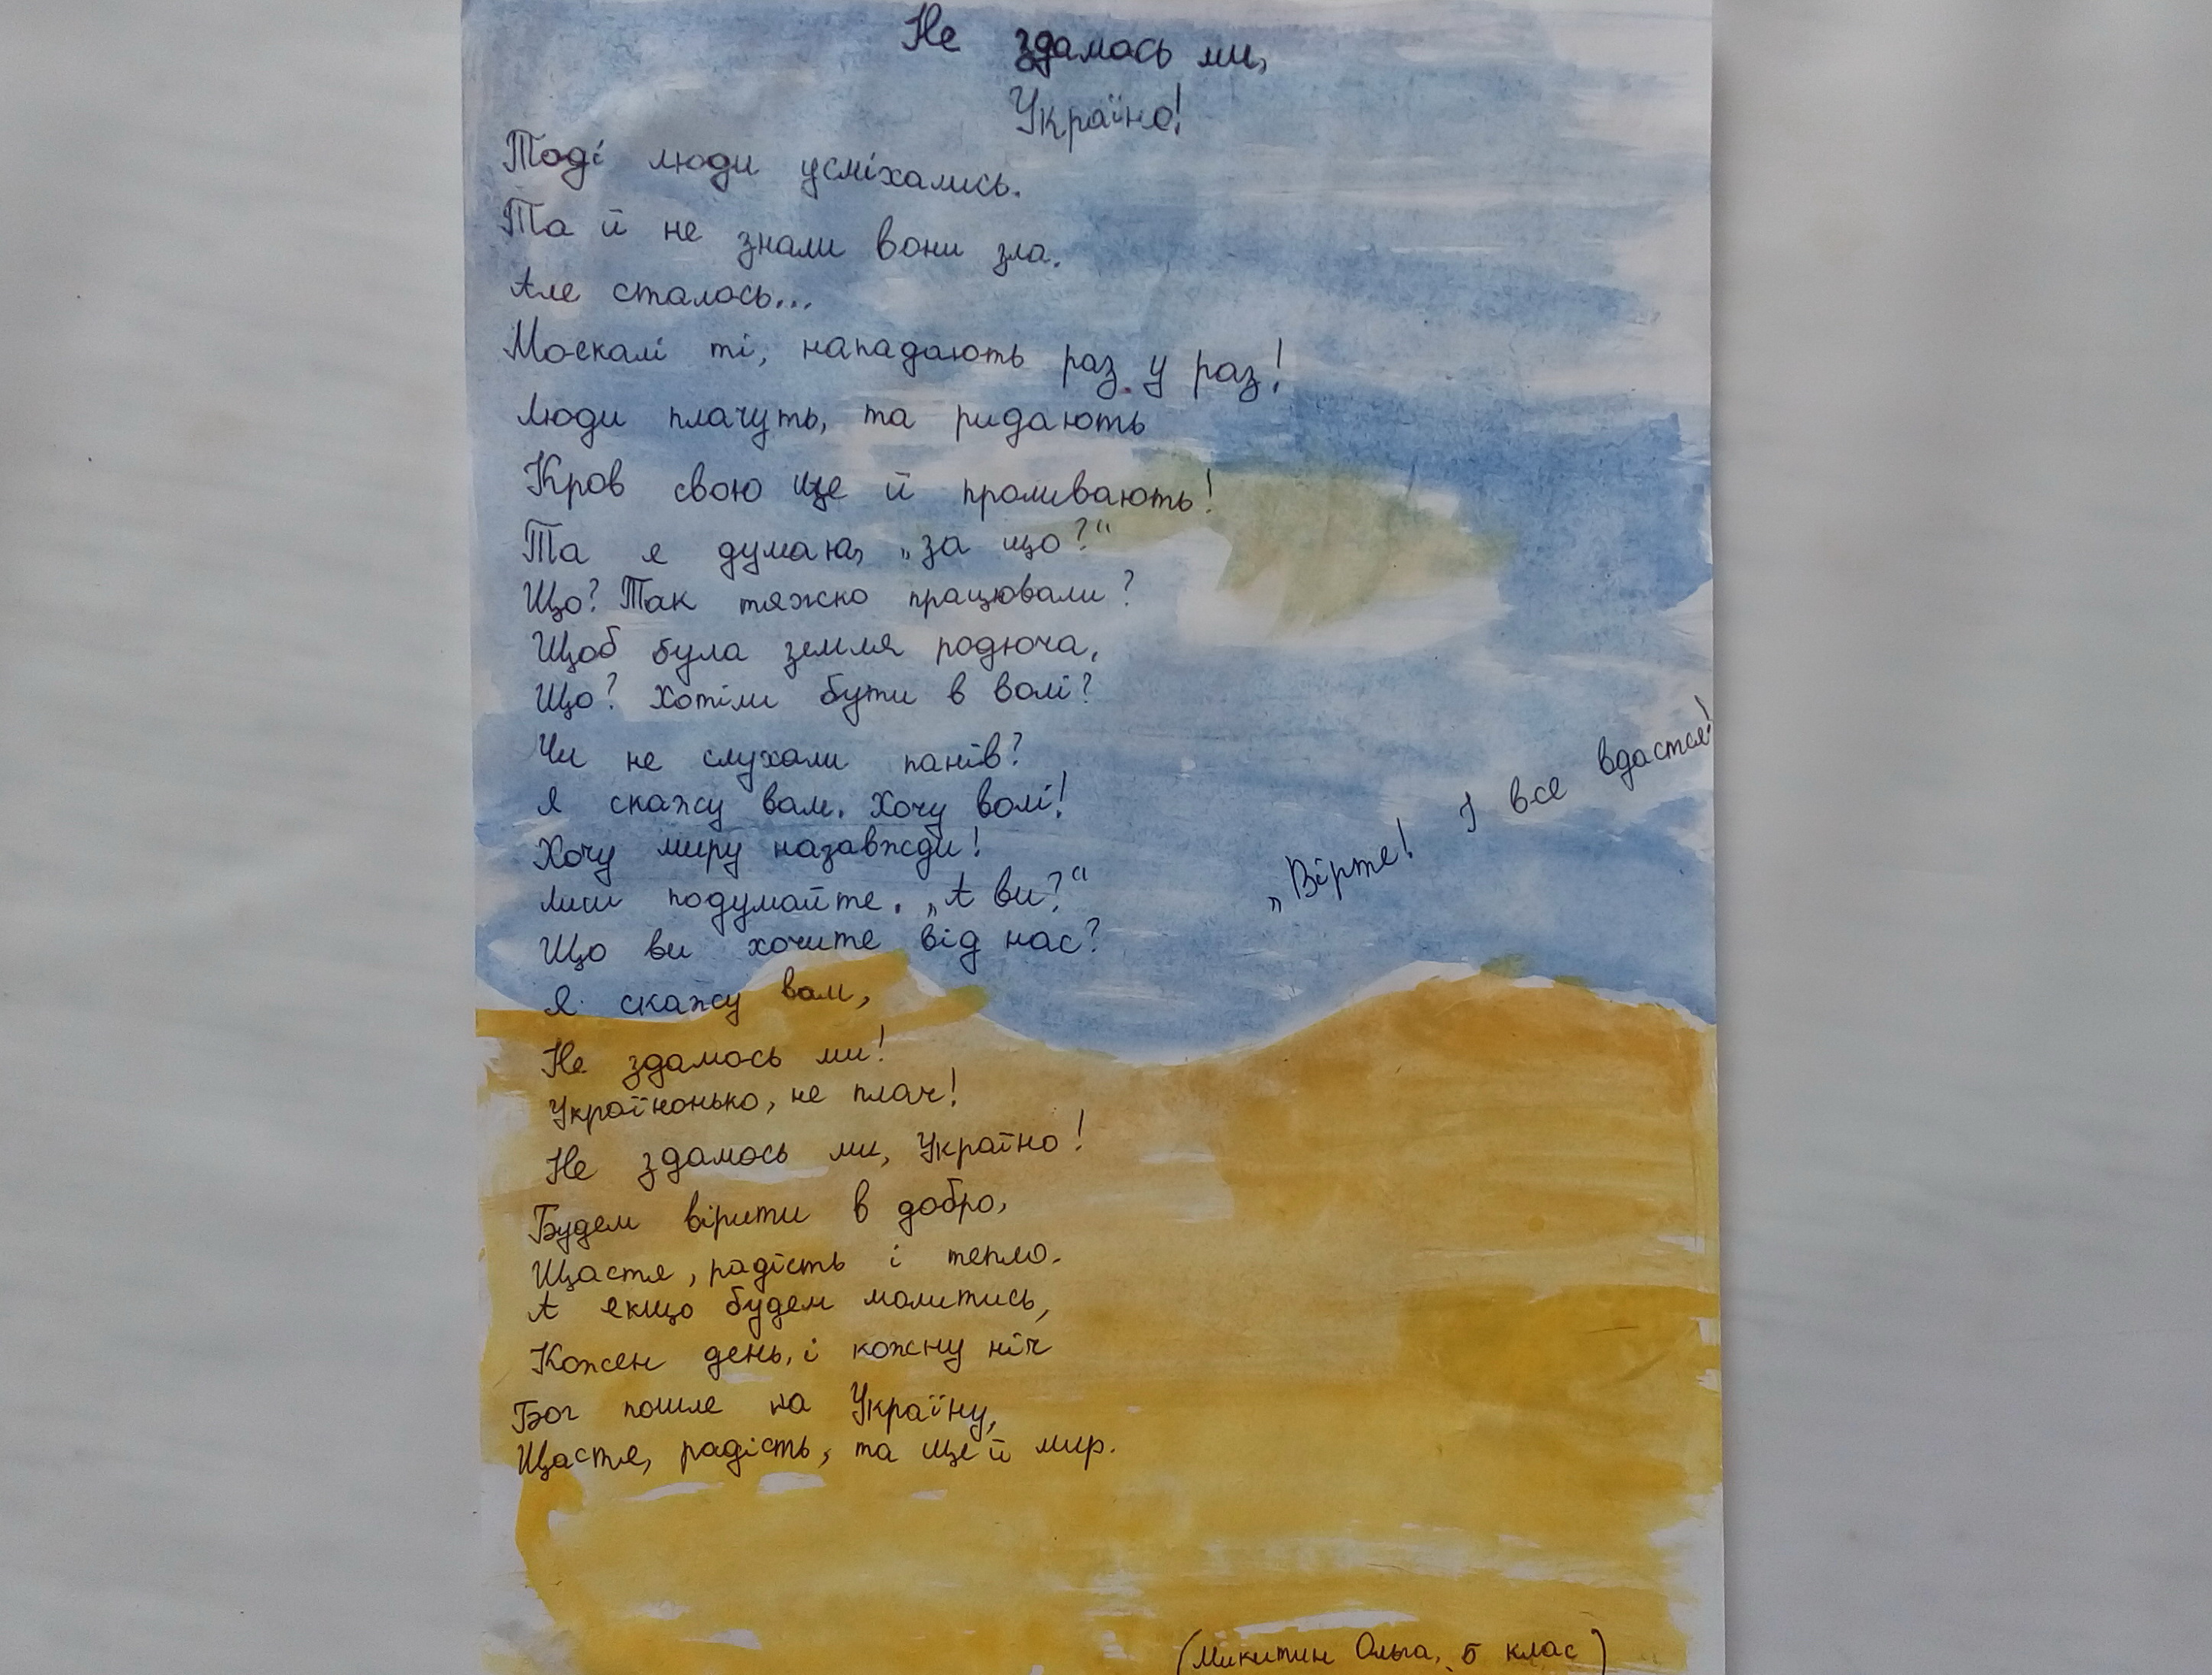 Не здамось ми,
Україно!
Тоді люди усміхались.
Та й не знали вони зла.
Але сталось...
Москалі ті, нападають раз у раз!
Люди плачуть, та ридають
Кров свою ще й проливають!
Та я думаю, „за що?“
Що? Так тяжко працювали?
Щоб була земля родюча,
Що? Хотіли бути в волі?
Чи не слухали панів?
Я скажу вам. Хочу волі!
Хочу миру назавжди!
Лиш подумайте. „А ви?“
Що ви хочите від нас?
Я скажу вам,
Не здамось ми!
Українонько, не плач!
Не здамось ми, Україно!
Будем вірити в добро,
Щастя, радість і тепло.
А якщо будем молитись,
Кожен день, і кожну ніч
Бог пошле на Україну,
Щастя, радість, та ще й мир.
„Вірте! І все вдастся!
(Микитин Ольга, 5 клас)